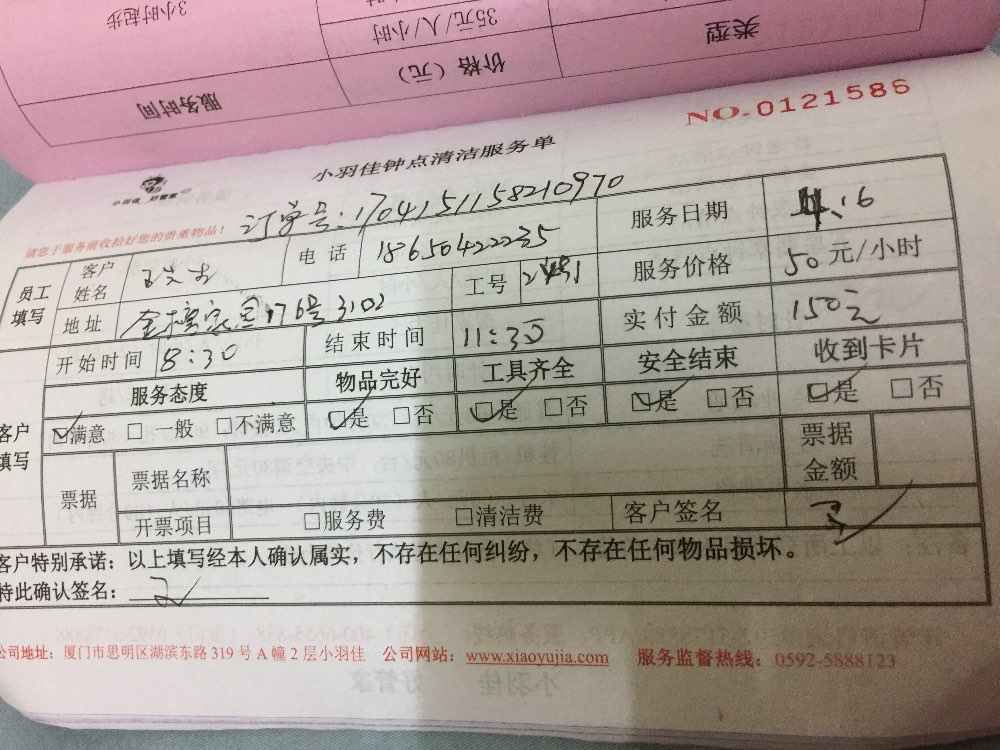 3小时起步
35元/人/小时
服务时间
价格（元）
类型
NO.0121586
小羽佳 好管家
小羽佳钟点清洁服务单
请您于服务前收拾好您的贵重物品！
订单号:1704151158210970
员工填写
客户姓名
电话 18650422235
服务日期 4.16
地址 176号3102
工号
服务价格 50元/小时
开始时间 8:30
结束时间 11:30
实付金额 150元
客户填写
服务态度 物品完好 工具齐全 安全结束 收到卡片
☑满意 □一般 □不满意 ☑是 □否 ☑是 □否 ☑是 □否 ☑是 □否
票据
票据名称
票据金额
开票项目 □服务费 □清洁费 客户签名
客户特别承诺：以上填写经本人确认属实，不存在任何纠纷，不存在任何物品损坏。
特此确认签名：
公司地址：厦门市思明区湖滨东路 319 号 A 幢 2 层小羽佳 公司网站：www.xiaoyujia.com 服务监督热线：0592-5888123